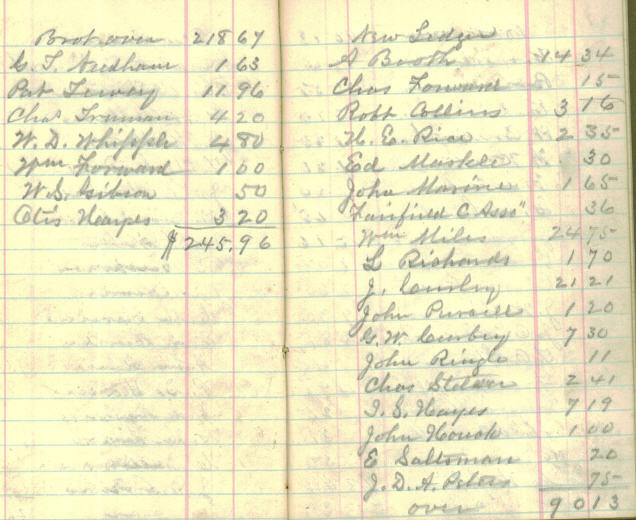 Brot over 218 67
G. T. Needham 1 63
Pat 11 96
Chas Truman 4 20
W. D. Whipple 4 80
Wm Forward 1 00
W. S. Gibson 50
Otis Hayes 3 20
$245.96
New Ledger
A Booth 14 34
Chas Forward 15
Robt Collins 3 16
H. E. Rice 2 35
Ed 30
John Marine 1 65
Fairfield C. Assn 36
Wm Miles 24 75
L Richards 1 70
J. 21 21
John Pursell 1 20
G. W. 7 30
John Ringle 11
Chas 2 41
I. S. Hayes 7 19
John Houck 1 00
E Saltsman 20
J. D. A. Peters 75
over 90 13